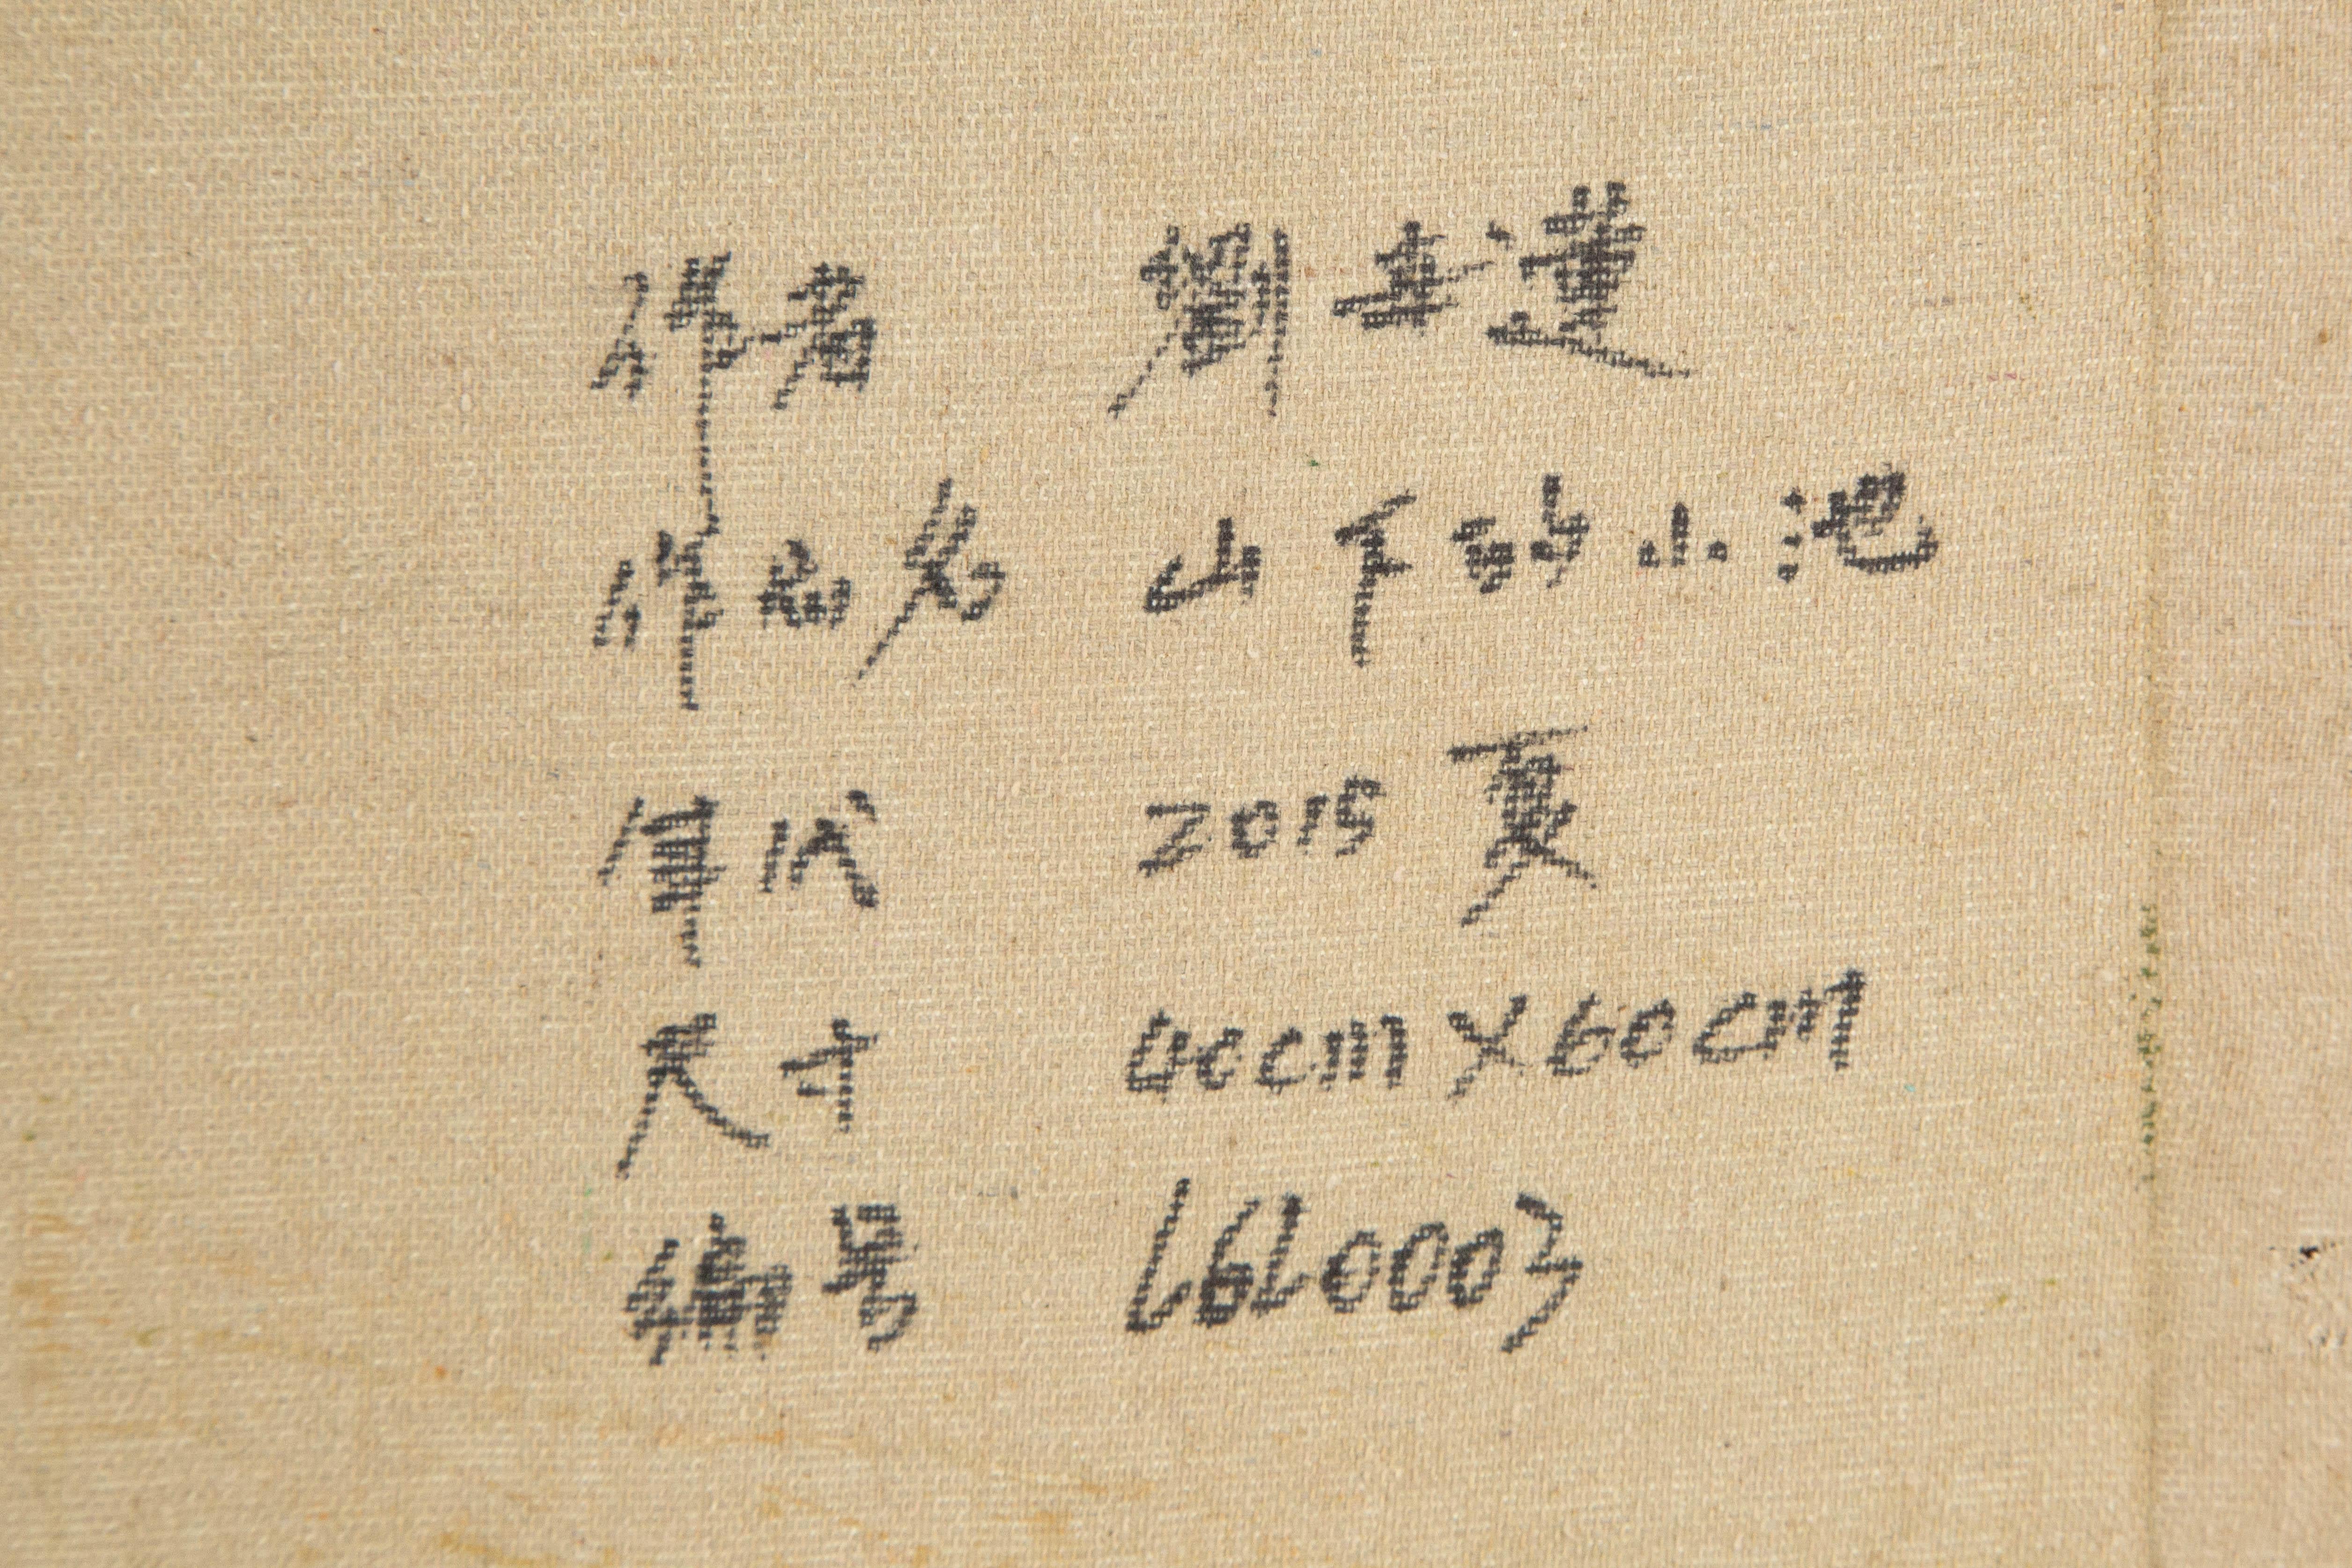 作者 劉士達
作品名 山下的小池
年代 2015 夏
尺寸 40cm×60cm
编号 L6L0003